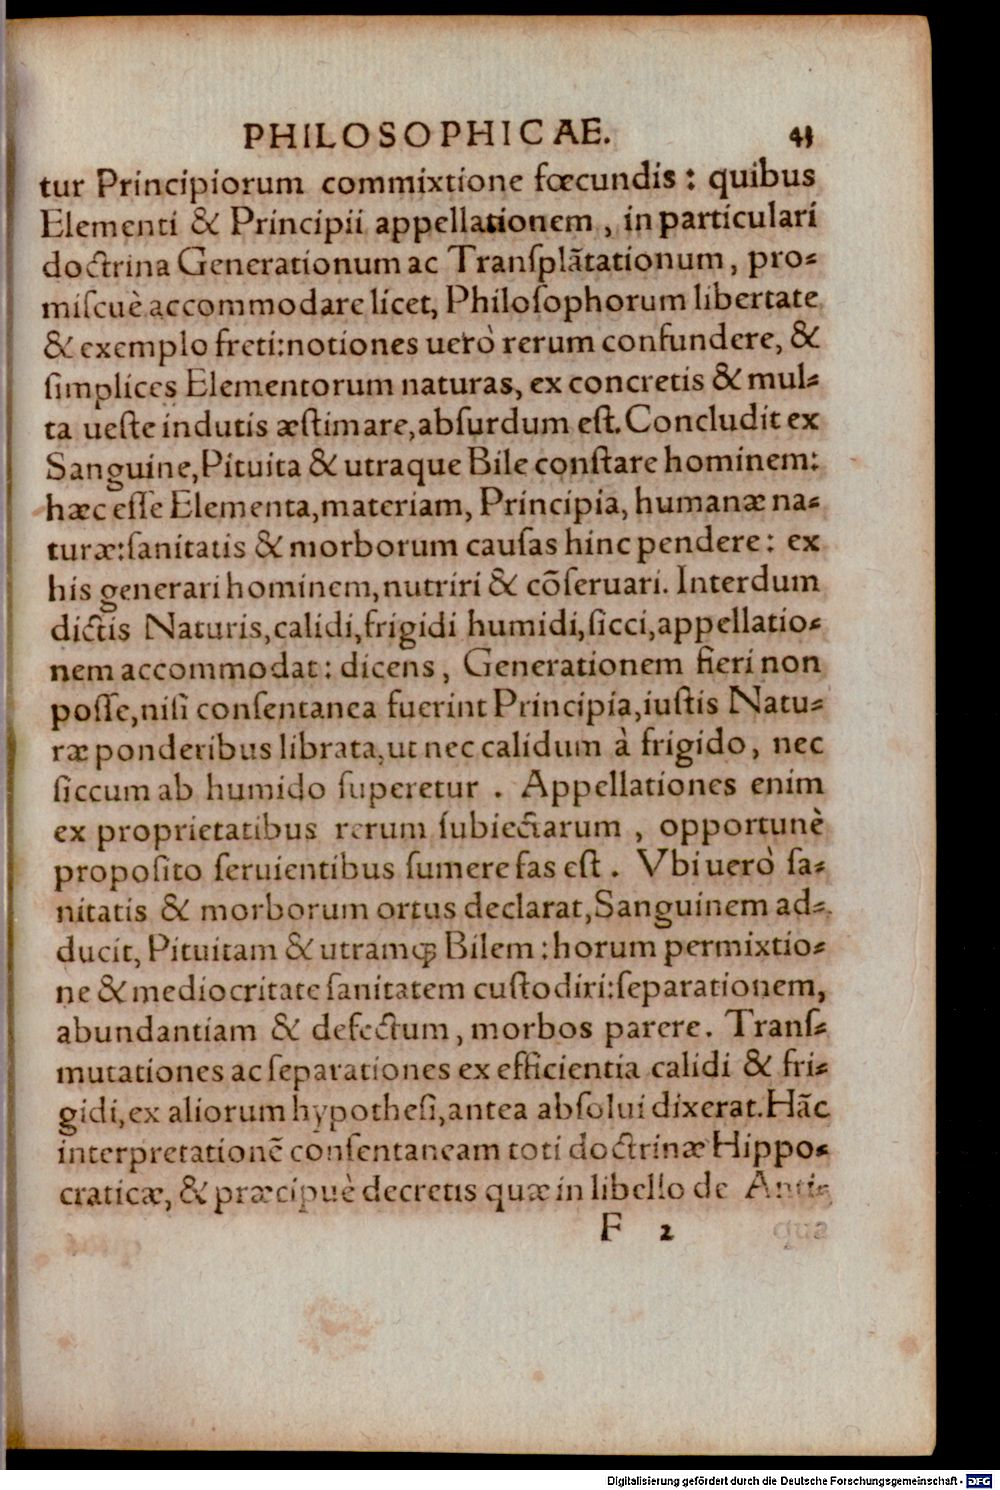 PHILOSOPHICAE. 43
tur Principiorum commixtione fœcundis : quibus
Elementi & Principii appellationem , in particulari
doctrina Generationum ac Tranſplãtationum, pro-
miſcuè accommodare licet, Philoſophorum libertate
& exemplo freti:notiones uerò rerum confundere, &
ſimplices Elementorum naturas, ex concretis & mul-
ta ueſte indutis æſtimare,abſurdum eſt.Concludit ex
Sanguine,Pituita & utraque Bile conſtare hominem:
hæc eſſe Elementa,materiam, Principia, humanæ na-
turæ:ſanitatis & morborum cauſas hinc pendere: ex
his generari hominem,nutriri & cõſeruari. Interdum
dictis Naturis,calidi,frigidi humidi,ſicci,appellatio-
nem accommodat: dicens, Generationem fieri non
poſſe,niſi conſentanea fuerint Principia,iuſtis Natu-
ræ ponderibus librata,ut nec calidum à frigido, nec
ſiccum ab humido ſuperetur . Appellationes enim
ex proprietatibus rerum ſubiectarum , opportunè
propoſito ſeruientibus ſumere fas eſt . Vbi uerò ſa-
nitatis & morborum ortus declarat,Sanguinem ad-
ducit, Pituitam & utramq; Bilem : horum permixtio-
ne & mediocritate ſanitatem cuſtodiri:ſeparationem,
abundantiam & defectum, morbos parere. Tranſ-
mutationes ac ſeparationes ex efficientia calidi & fri-
gidi,ex aliorum hypotheſi,antea abſolui dixerat.Hãc
interpretationẽ conſentaneam toti doctrinæ Hippo-
craticæ, & præcipuè decretis quæ in libello de Anti-
F 2 qua
Digitalisierung gefördert durch die Deutsche Forschungsgemeinschaft - DFG